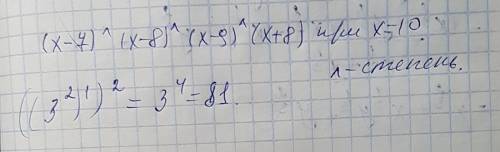 (x-7)^ (x-8)^ (x-9)^ (x+8) при x=10
^-степень.
((3²)¹)² = 3⁴ = 81.